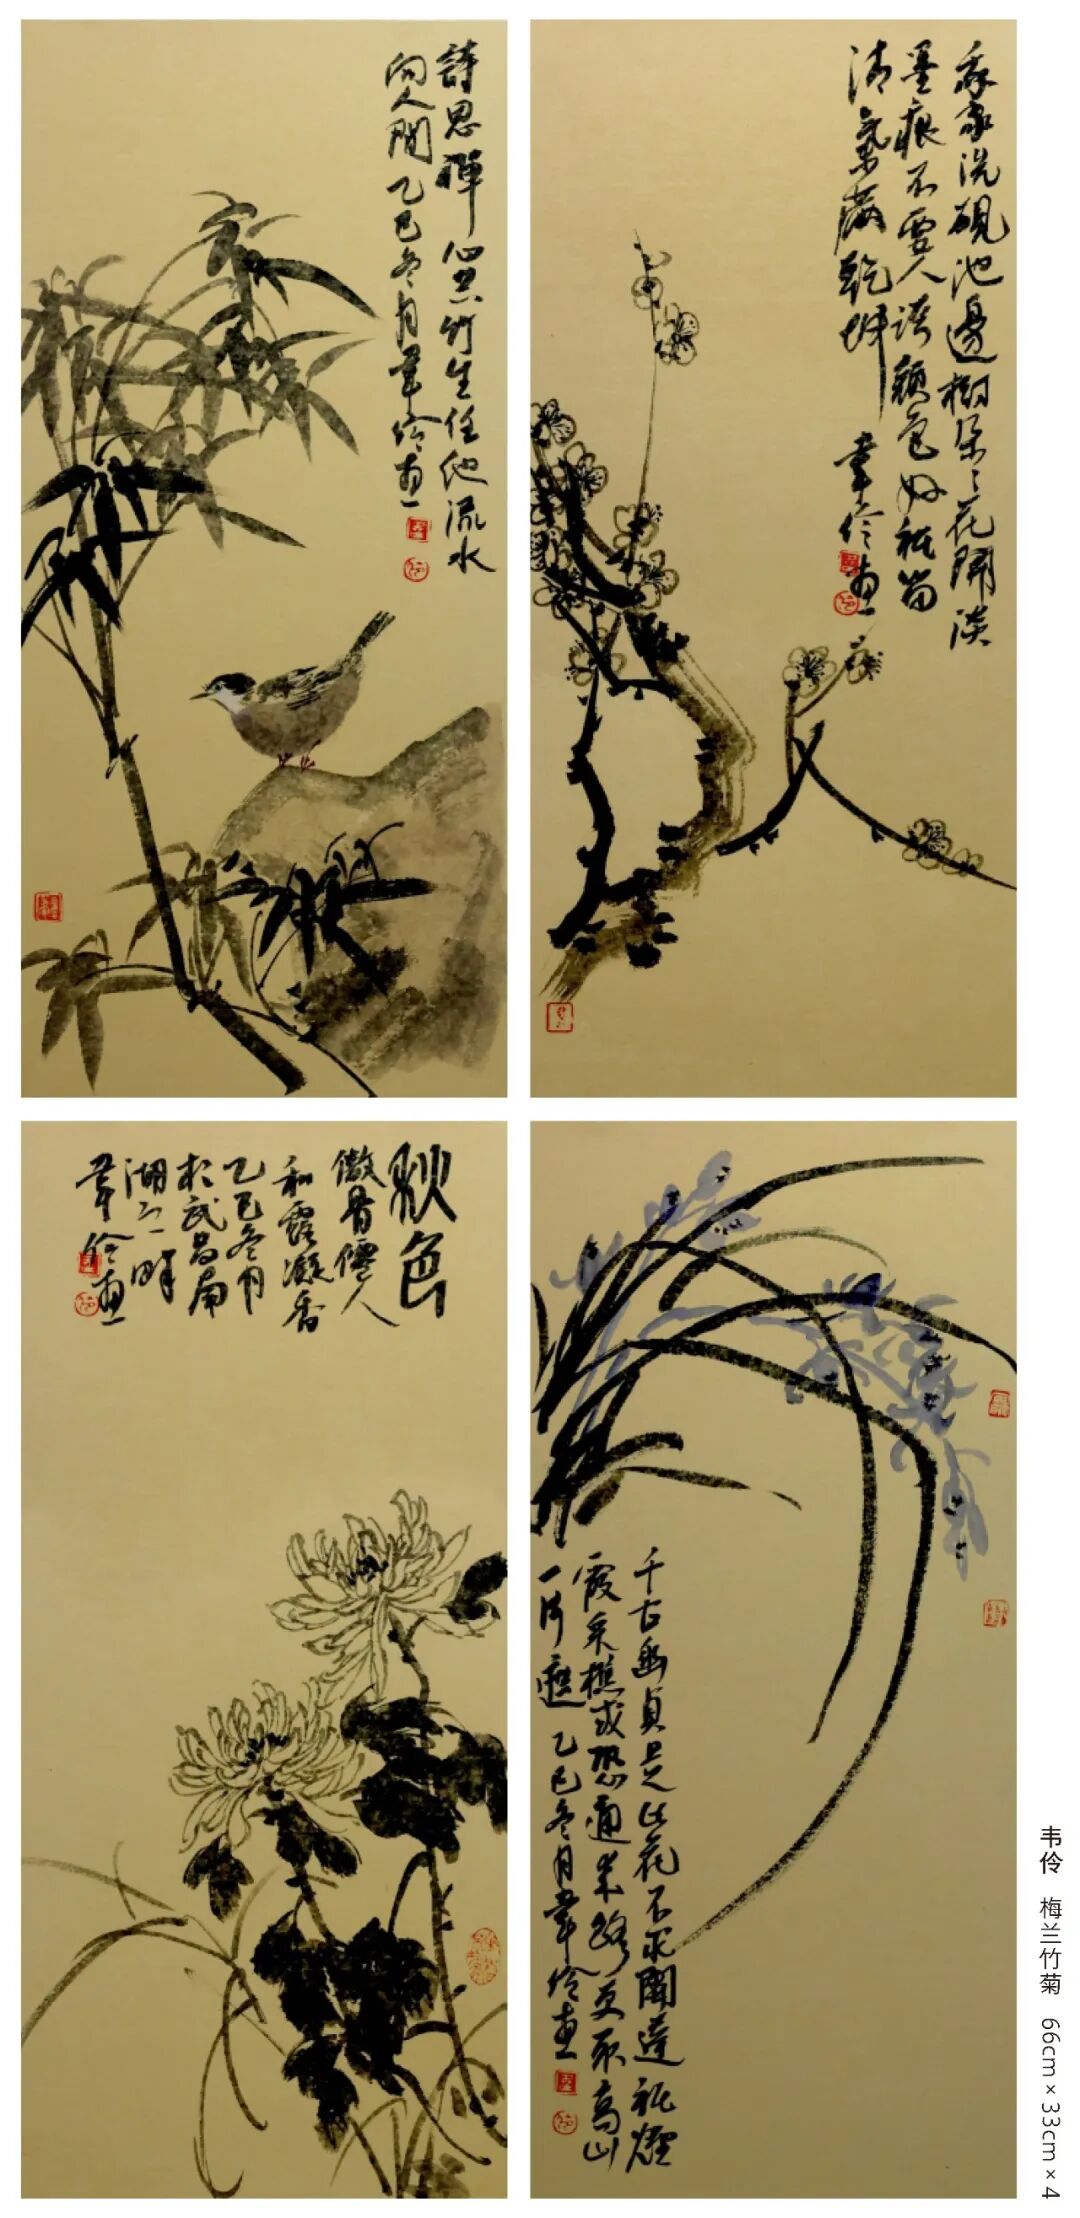 詩思禪心共竹生任他流水
向人間乙巳冬月韋伶畫
吾家洗硯池邊樹朵〻花開淡
墨痕不要人誇顏色好祇留
清氣滿乾坤 韋伶畫
秋色
傲骨僊人
和露凝香
乙巳冬月
於武昌南
湖之畔
韋伶畫
千古幽貞是此花不求聞達祇煙
霞采樵或恐通來路更取高山
一片遮 乙巳冬月韋伶畫
韦伶 梅兰竹菊 66cm×33cm×4